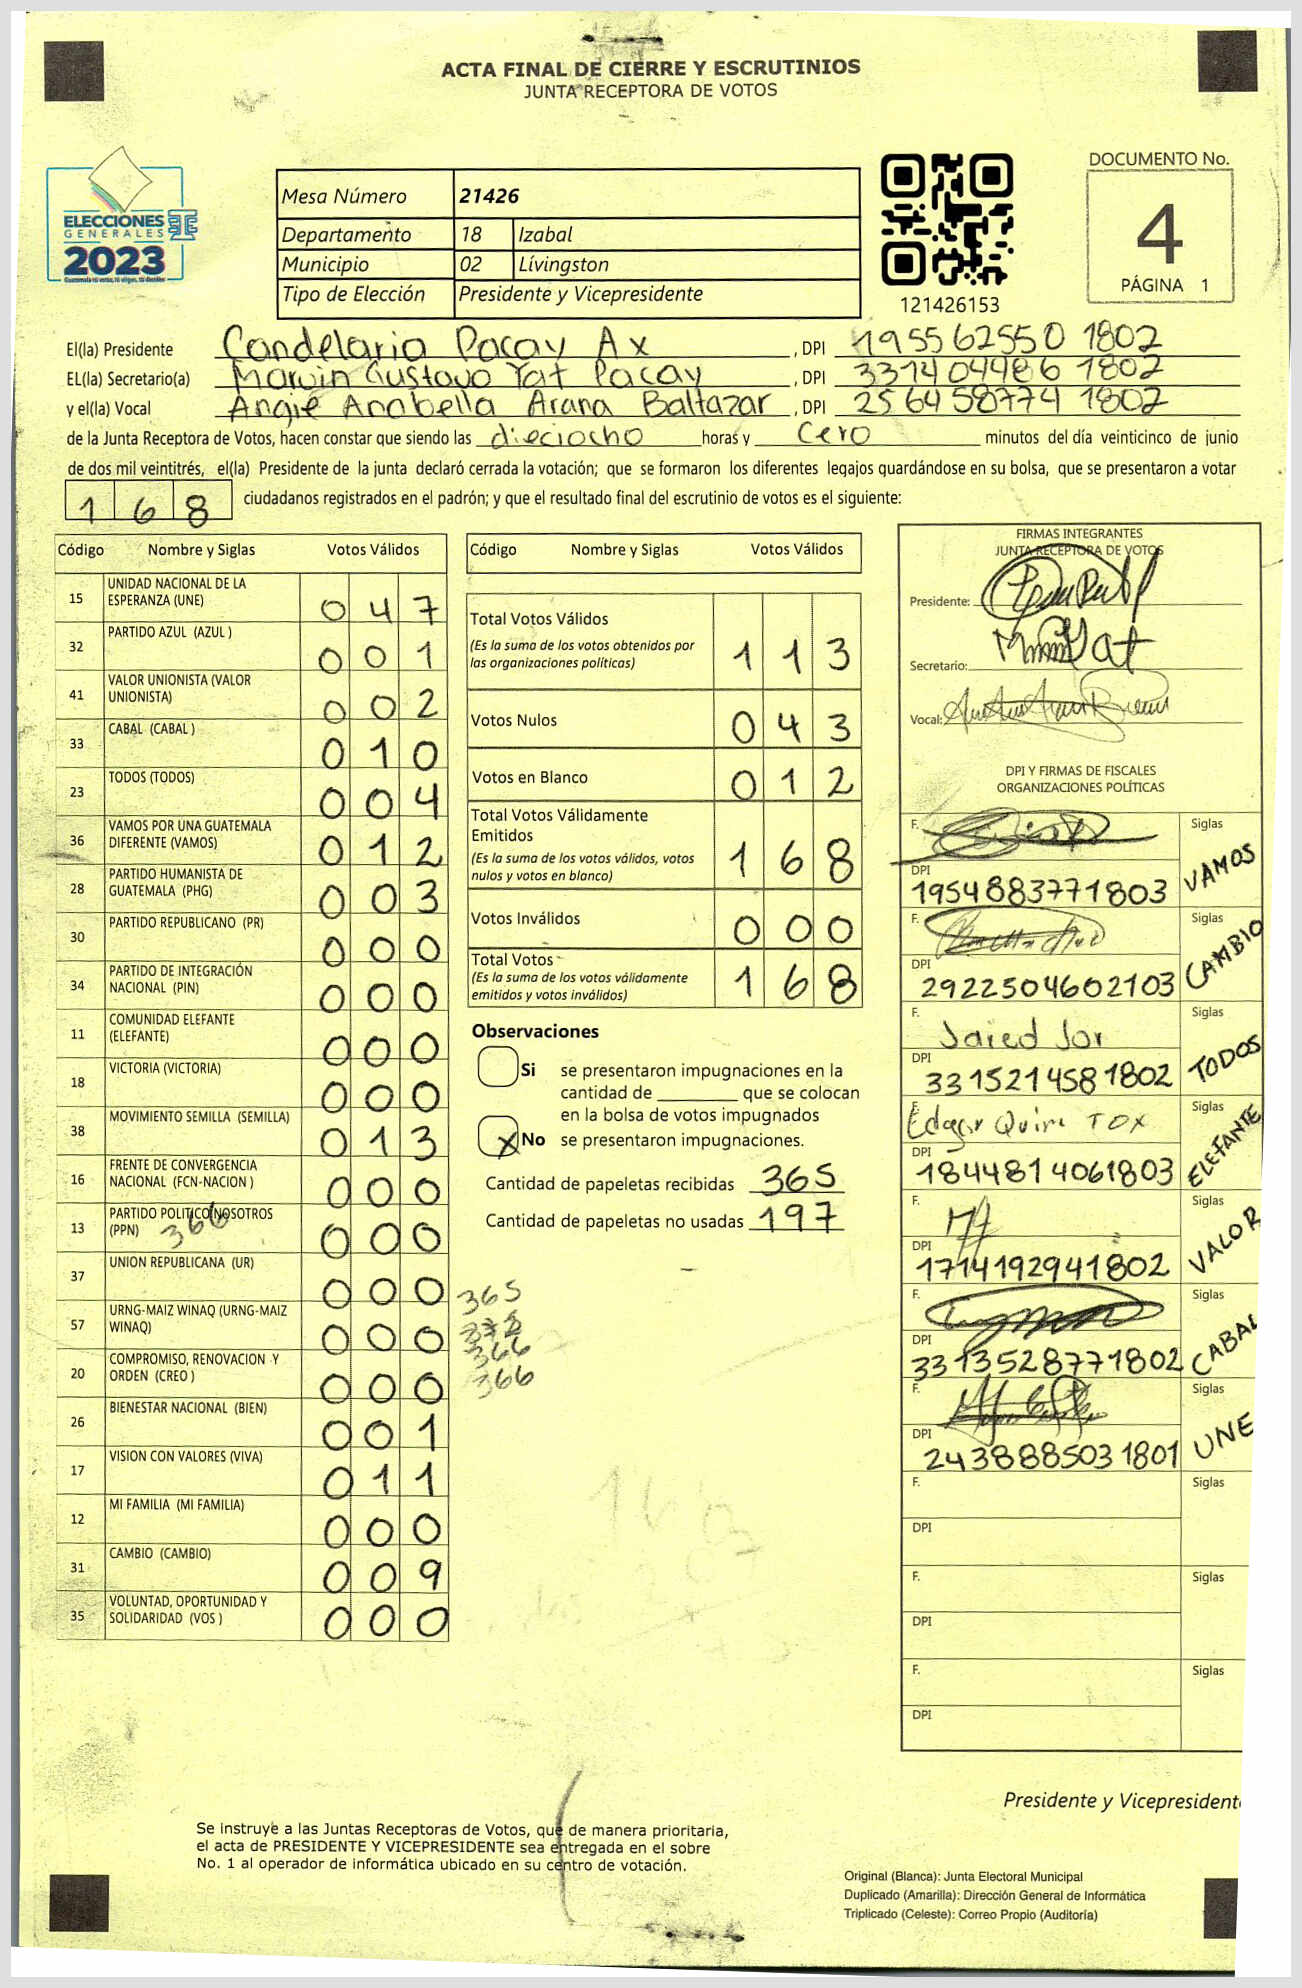 ACTA FINAL DE CIERRE Y ESCRUTINIOS
JUNTA RECEPTORA DE VOTOS
ELECCIONES
GENERALES
2023
Mesa Número 21426
Departamento 18 Izabal
Municipio 02 Lívingston
Tipo de Elección Presidente y Vicepresidente
121426153
DOCUMENTO No.
4
PÁGINA 1
El(la) Presidente Candelaria Pacay Ax , DPI 195562550 1802
EL(la) Secretario(a) Marvin Gustavo Yat Pacay , DPI 331404486 1802
y el(la) Vocal Angie Anabella Arana Baltazar , DPI 256458774 1802
de la Junta Receptora de Votos, hacen constar que siendo las dieciocho horas y cero minutos del día veinticinco de junio
de dos mil veintitrés, el(la) Presidente de la junta declaró cerrada la votación; que se formaron los diferentes legajos guardándose en su bolsa, que se presentaron a votar
168 ciudadanos registrados en el padrón; y que el resultado final del escrutinio de votos es el siguiente:
Código Nombre y Siglas Votos Válidos
15 UNIDAD NACIONAL DE LA ESPERANZA (UNE) 047
32 PARTIDO AZUL (AZUL ) 001
41 VALOR UNIONISTA (VALOR UNIONISTA) 002
33 CABAL (CABAL ) 010
23 TODOS (TODOS) 004
36 VAMOS POR UNA GUATEMALA DIFERENTE (VAMOS) 012
28 PARTIDO HUMANISTA DE GUATEMALA (PHG) 003
30 PARTIDO REPUBLICANO (PR) 000
34 PARTIDO DE INTEGRACIÓN NACIONAL (PIN) 000
11 COMUNIDAD ELEFANTE (ELEFANTE) 000
18 VICTORIA (VICTORIA) 000
38 MOVIMIENTO SEMILLA (SEMILLA) 013
16 FRENTE DE CONVERGENCIA NACIONAL (FCN-NACION ) 000
13 PARTIDO POLITICO NOSOTROS (PPN) 366 000
37 UNION REPUBLICANA (UR) 000
57 URNG-MAIZ WINAQ (URNG-MAIZ WINAQ) 000
20 COMPROMISO, RENOVACION Y ORDEN (CREO ) 000
26 BIENESTAR NACIONAL (BIEN) 001
17 VISION CON VALORES (VIVA) 011
12 MI FAMILIA (MI FAMILIA) 000
31 CAMBIO (CAMBIO) 009
35 VOLUNTAD, OPORTUNIDAD Y SOLIDARIDAD (VOS ) 000
Código Nombre y Siglas Votos Válidos
Total Votos Válidos
(Es la suma de los votos obtenidos por
las organizaciones políticas) 113
Votos Nulos 043
Votos en Blanco 012
Total Votos Válidamente
Emitidos
(Es la suma de los votos válidos, votos
nulos y votos en blanco) 168
Votos Inválidos 000
Total Votos
(Es la suma de los votos válidamente
emitidos y votos inválidos) 168
Observaciones
Si se presentaron impugnaciones en la
cantidad de ________ que se colocan
en la bolsa de votos impugnados
X No se presentaron impugnaciones.
Cantidad de papeletas recibidas 365
Cantidad de papeletas no usadas 197
365
366
366
FIRMAS INTEGRANTES
JUNTA RECEPTORA DE VOTOS
Presidente:
Secretario:
Vocal:
DPI Y FIRMAS DE FISCALES
ORGANIZACIONES POLÍTICAS
F. Siglas
DPI 1954883771803 VAMOS
F. Siglas
DPI 2922504602103 CAMBIO
F. Jaied Jor Siglas
DPI 3315214581802 TODOS
F. Edgar Quim TOX Siglas
DPI 1844814061803 ELEFANTE
F. Siglas
DPI 1714192941802 VALOR
F. Siglas
DPI 3313528771802 CABAL
F. Siglas
DPI 2438885031801 UNE
F. Siglas
DPI
F. Siglas
DPI
F. Siglas
DPI
Presidente y Vicepresident
Se instruye a las Juntas Receptoras de Votos, que de manera prioritaria,
el acta de PRESIDENTE Y VICEPRESIDENTE sea entregada en el sobre
No. 1 al operador de informática ubicado en su centro de votación.
Original (Blanca): Junta Electoral Municipal
Duplicado (Amarilla): Dirección General de Informática
Triplicado (Celeste): Correo Propio (Auditoría)